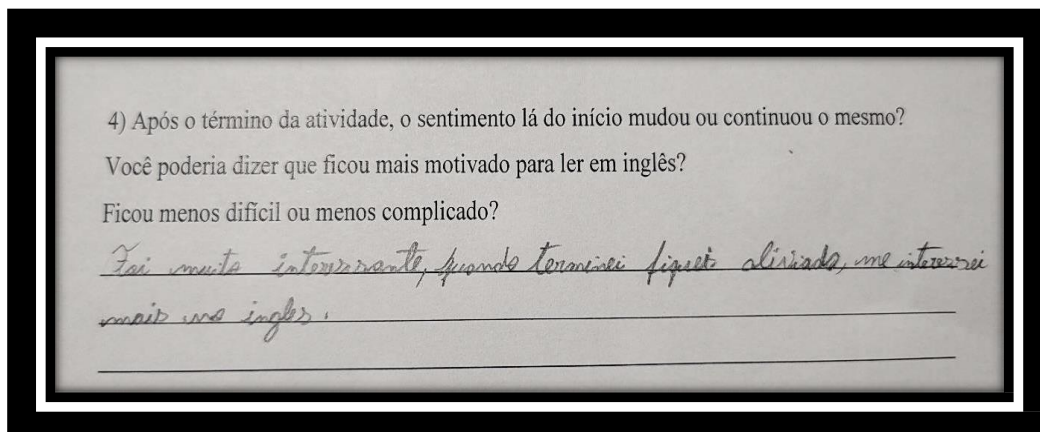 4) Após o término da atividade, o sentimento lá do início mudou ou continuou o mesmo?
Você poderia dizer que ficou mais motivado para ler em inglês?
Ficou menos difícil ou menos complicado?
Foi muito interessante, quando terminei fiquei aliviada, me interessei
mais no ingles.